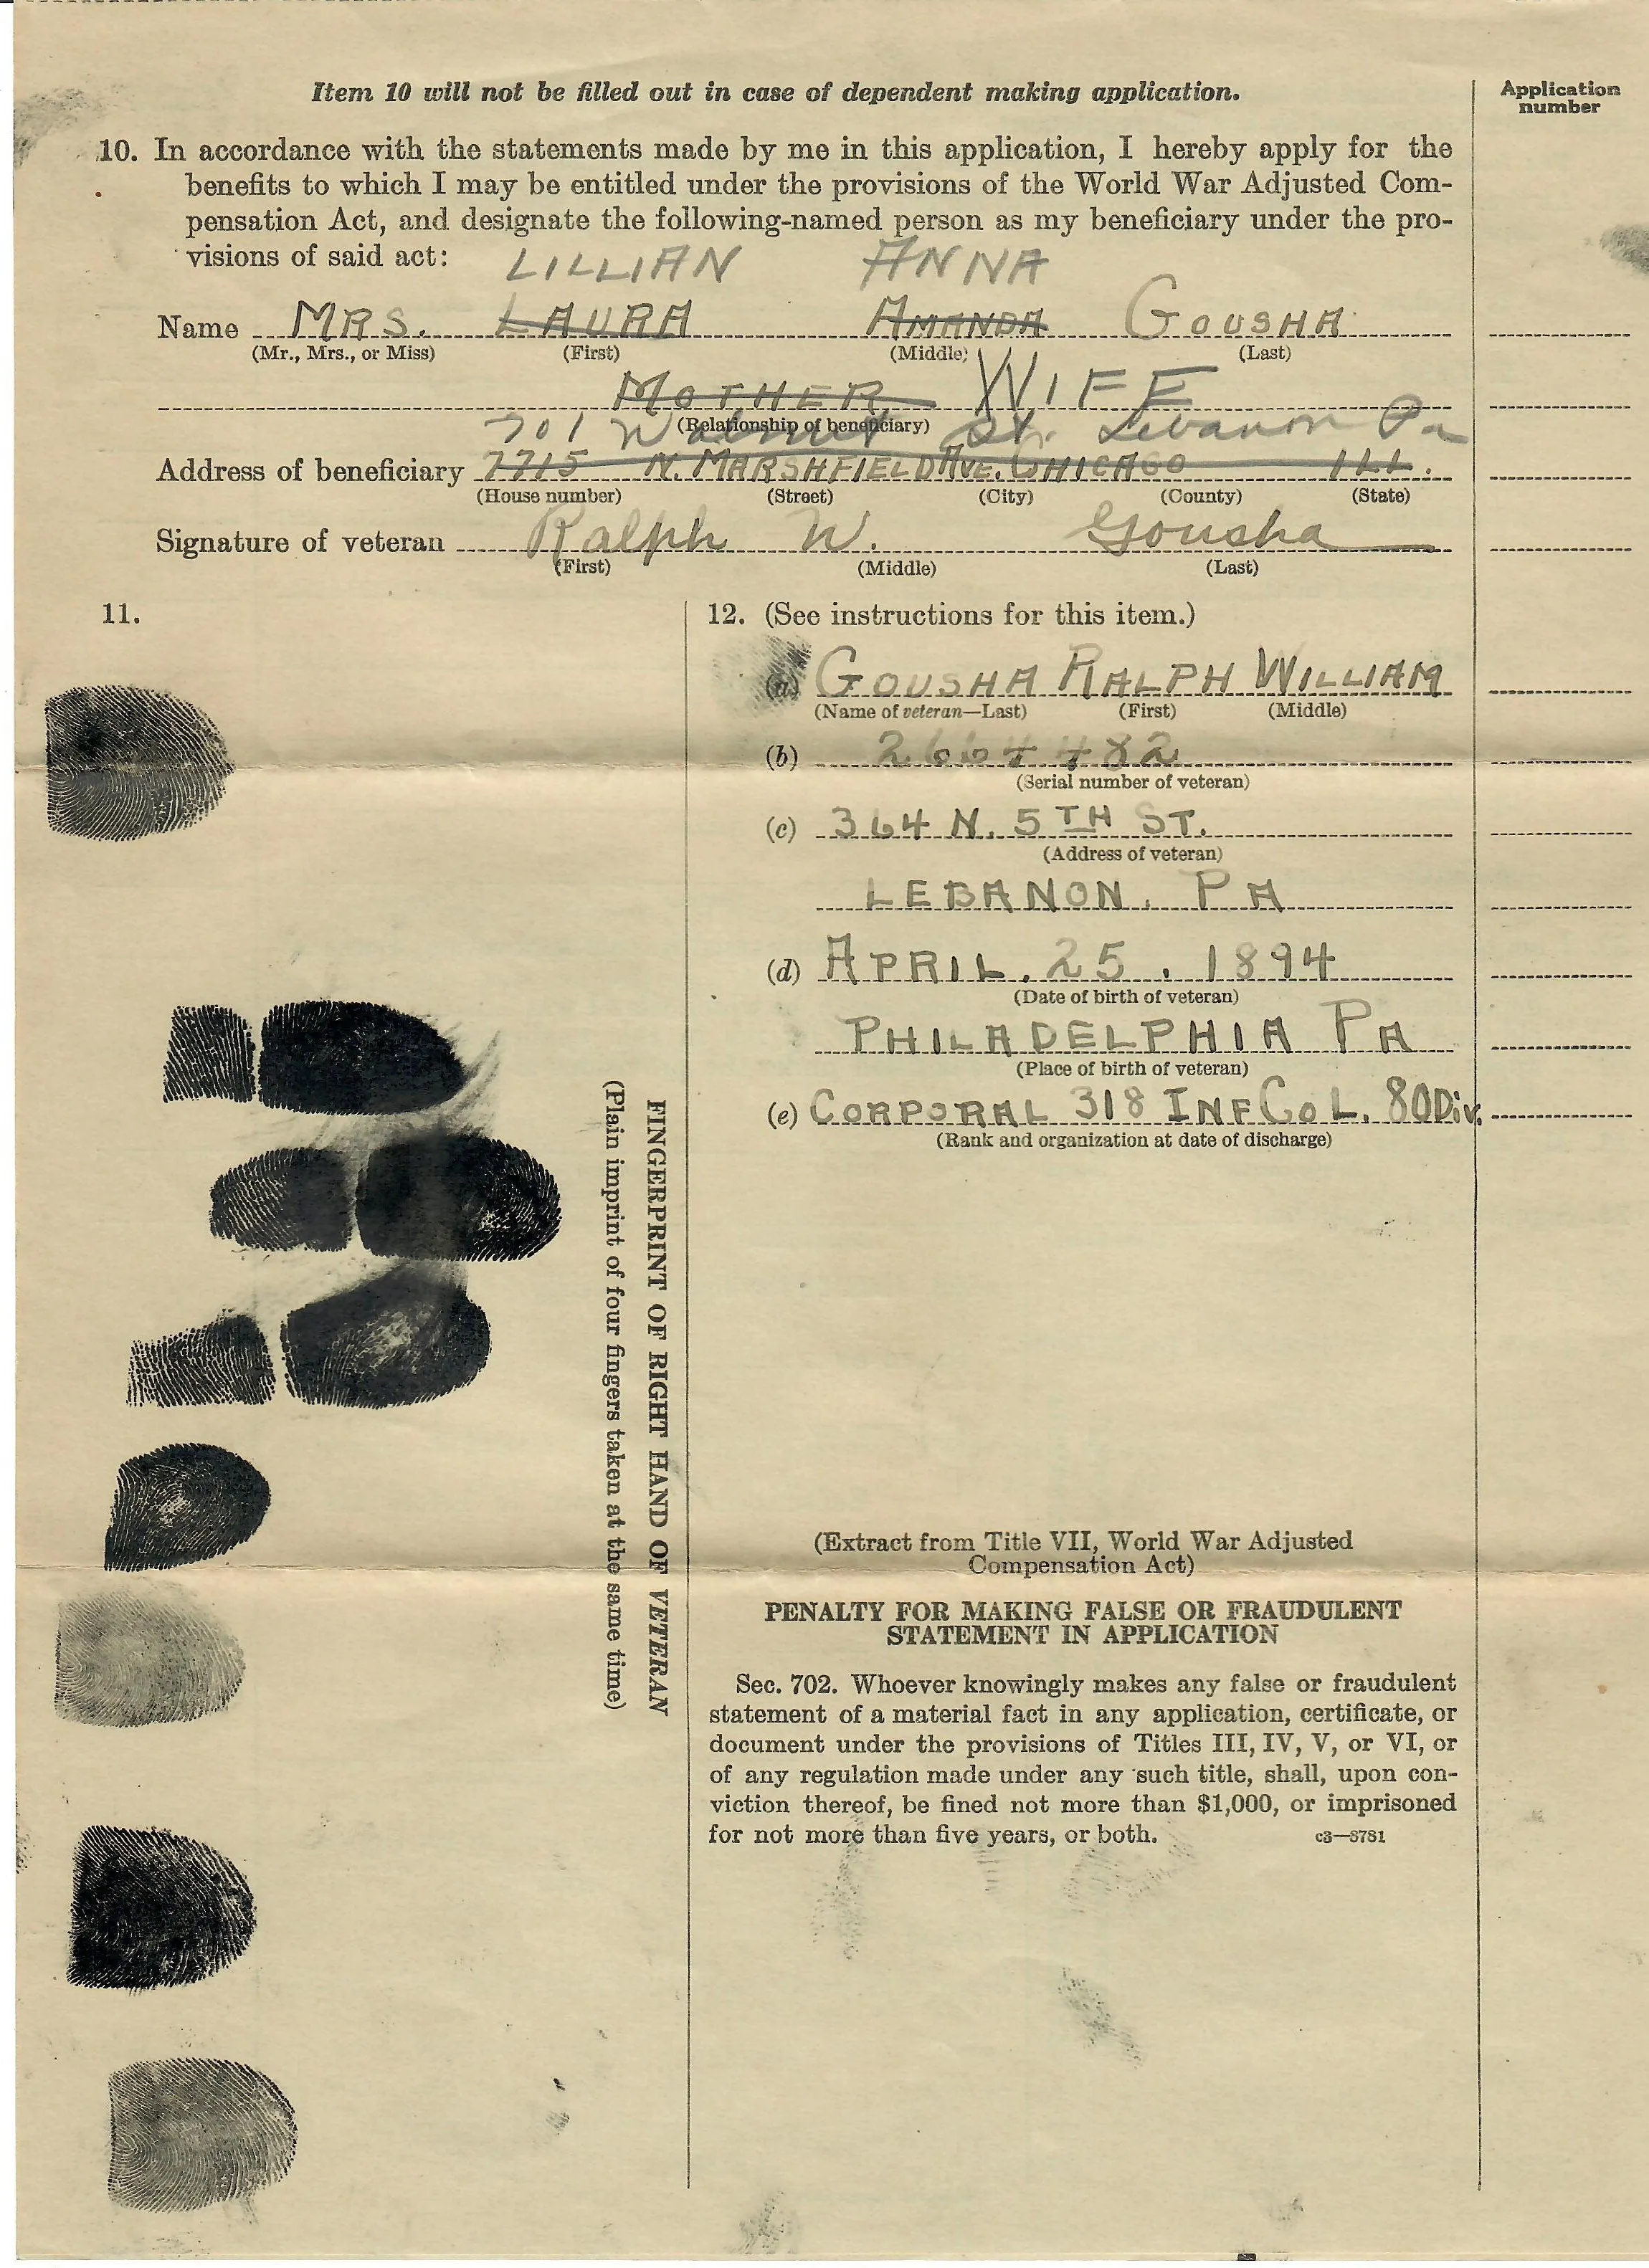 Item 10 will not be filled out in case of dependent making application.
Application
number
10. In accordance with the statements made by me in this application, I hereby apply for the
benefits to which I may be entitled under the provisions of the World War Adjusted Com-
pensation Act, and designate the following-named person as my beneficiary under the pro-
visions of said act:
LILLIAN ANNA
Name MRS. LAURA AMANDA GOUSHA
(Mr., Mrs., or Miss) (First) (Middle) (Last)
MOTHER WIFE
(Relationship of beneficiary)
701 Walnut St. Lebanon Pa
Address of beneficiary 7715 N. MARSHFIELD AVE. CHICAGO ILL.
(House number) (Street) (City) (County) (State)
Signature of veteran Ralph W. Gousha
(First) (Middle) (Last)
11.
FINGERPRINT OF RIGHT HAND OF VETERAN
(Plain imprint of four fingers taken at the same time)
12. (See instructions for this item.)
(a) GOUSHA RALPH WILLIAM
(Name of veteran—Last) (First) (Middle)
(b) 2664482
(Serial number of veteran)
(c) 364 N. 5TH ST.
(Address of veteran)
LEBANON. PA
(d) APRIL. 25. 1894
(Date of birth of veteran)
PHILADELPHIA PA
(Place of birth of veteran)
(e) CORPORAL 318 INF CO L. 80 Div.
(Rank and organization at date of discharge)
(Extract from Title VII, World War Adjusted
Compensation Act)
PENALTY FOR MAKING FALSE OR FRAUDULENT
STATEMENT IN APPLICATION
Sec. 702. Whoever knowingly makes any false or fraudulent
statement of a material fact in any application, certificate, or
document under the provisions of Titles III, IV, V, or VI, or
of any regulation made under any such title, shall, upon con-
viction thereof, be fined not more than $1,000, or imprisoned
for not more than five years, or both. c3—8781